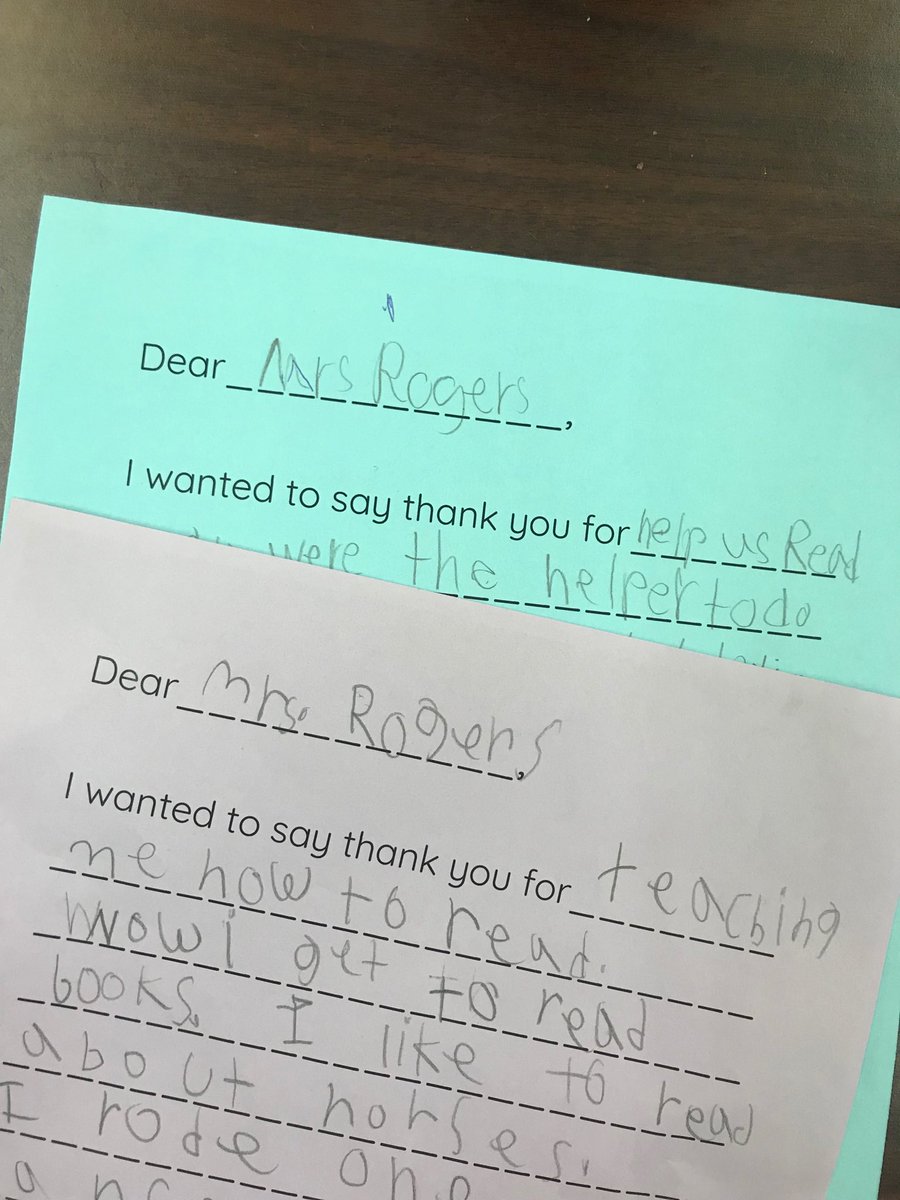 Dear Mrs Rogers,
I wanted to say thank you for help us Read
were the helper to do
Dear Mrs. Rogers,
I wanted to say thank you for teaching
me how to read.
Now i get to read
books. I like to read
about horses.
I rode one
a